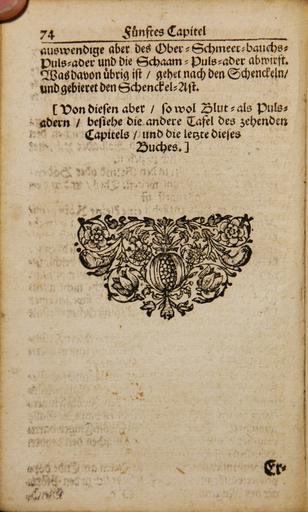 74 Fünftes Capitel
auswendige aber des Ober-Schmeer-bauchs-
Puls-ader und die Schaam-Puls-ader abwirft.
Was davon übrig ist / gehet nach den Schenckeln/
und gebieret den Schenckel-Ast.
[ Von diesen aber / so wol Blut- als Puls-
adern / besiehe die andere Tafel des zehenden
Capitels / und die letzte dieses
Buches. ]
Er-